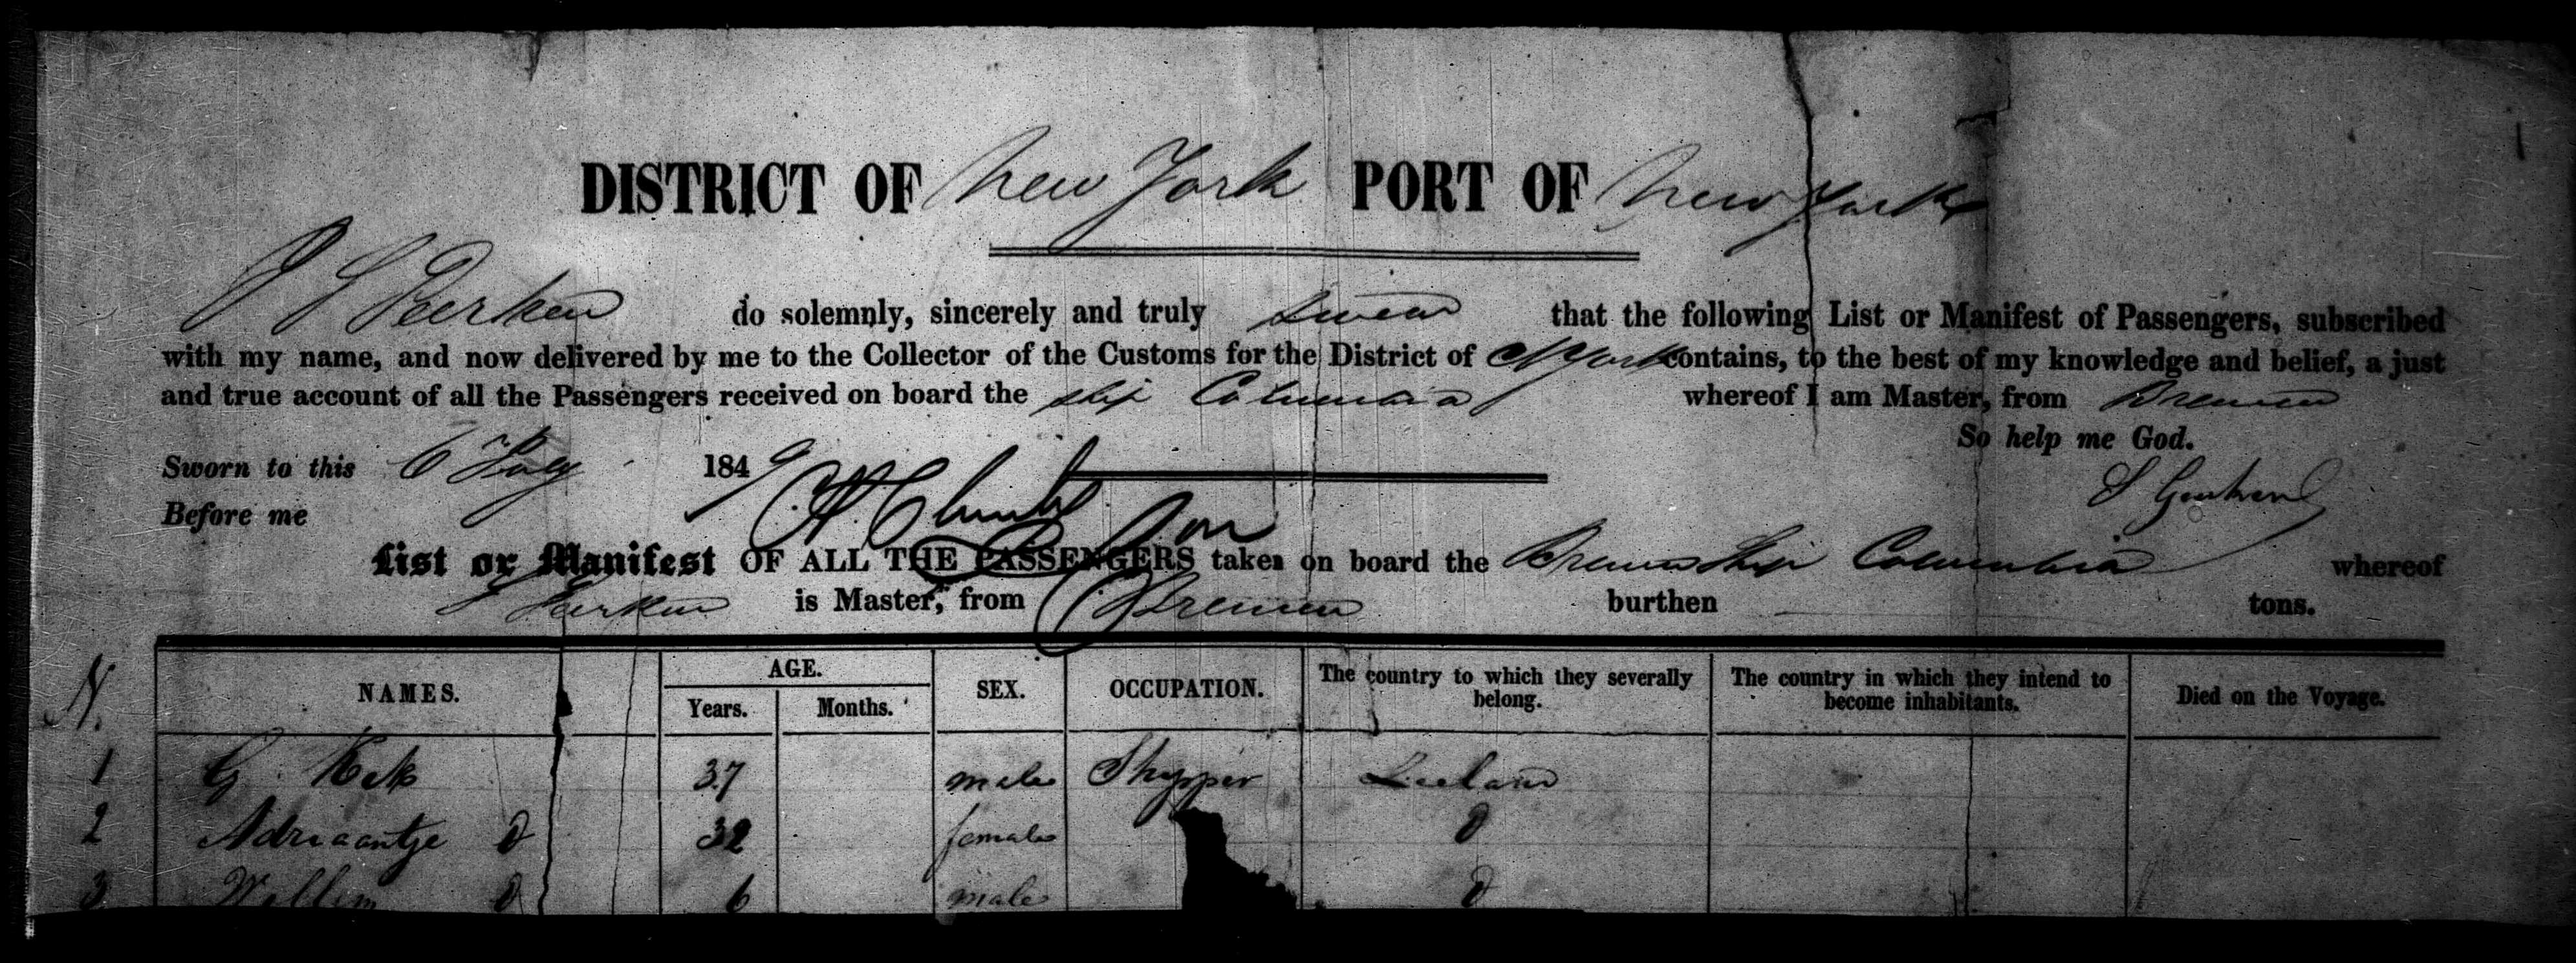 DISTRICT OF New York PORT OF New York
do solemnly, sincerely and truly swear that the following List or Manifest of Passengers, subscribed
with my name, and now delivered by me to the Collector of the Customs for the District of NYork contains, to the best of my knowledge and belief, a just
and true account of all the Passengers received on board the ship Columbia whereof I am Master, from Bremen
So help me God.
Sworn to this 6 July 1849
Before me
List or Manifest OF ALL THE PASSENGERS taken on board the Bremen Ship Columbia whereof
is Master, from Bremen burthen tons.
N. NAMES. AGE. Years. Months. SEX. OCCUPATION. The country to which they severally belong. The country in which they intend to become inhabitants. Died on the Voyage.
1 G 37 male
2 Adriaantje d 32 female d
3 Willem d 6 male d